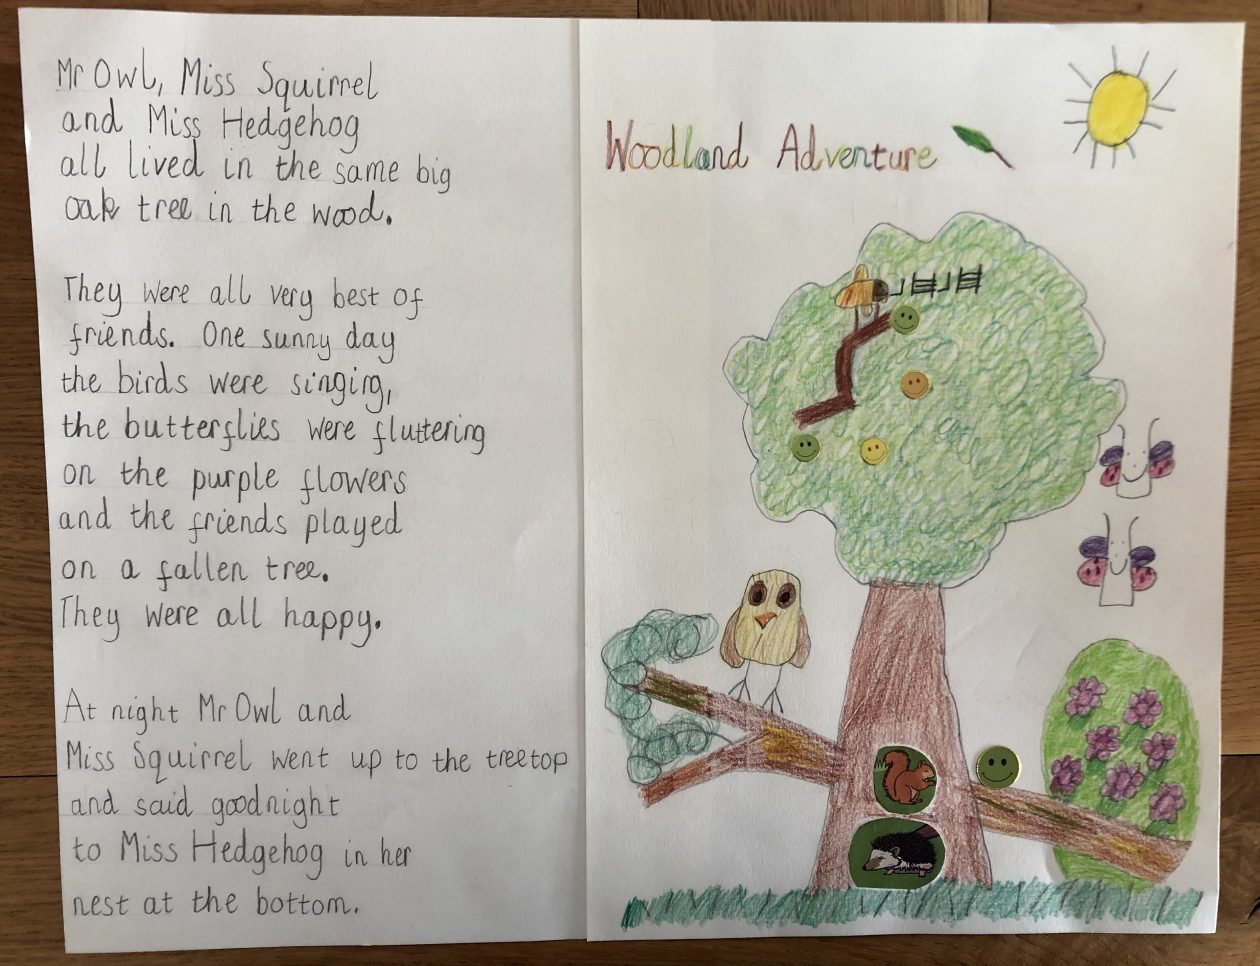 Mr Owl, Miss Squirrel
and Miss Hedgehog
all lived in the same big
oak tree in the wood.
They were all very best of
friends. One sunny day
the birds were singing,
the butterflies were fluttering
on the purple flowers
and the friends played
on a fallen tree.
They were all happy.
At night Mr Owl and
Miss Squirrel went up to the treetop
and said goodnight
to Miss Hedgehog in her
nest at the bottom.
Woodland Adventure